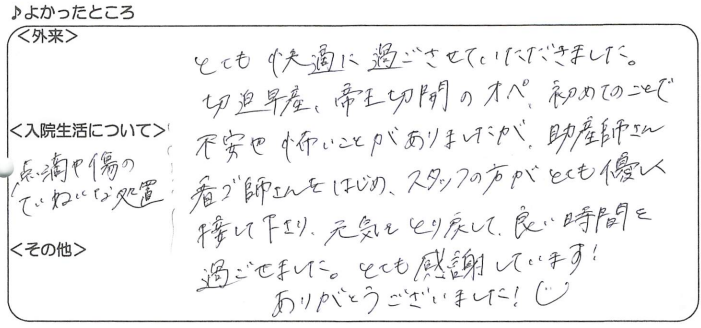 ♪よかったところ
<外来>
とても快適に過ごさせていただきました。
切迫早産、帝王切開のオペ、初めてのことで
<入院生活について>
不安や怖いことがありましたが、助産師さん
点滴や傷の
ていねいな処置
看ゴ師さんをはじめ、スタッフの方がとても優しく
接して下さり、元気をとり戻して、良い時間を
<その他>
過ごせました。とても感謝しています!
ありがとうございました!